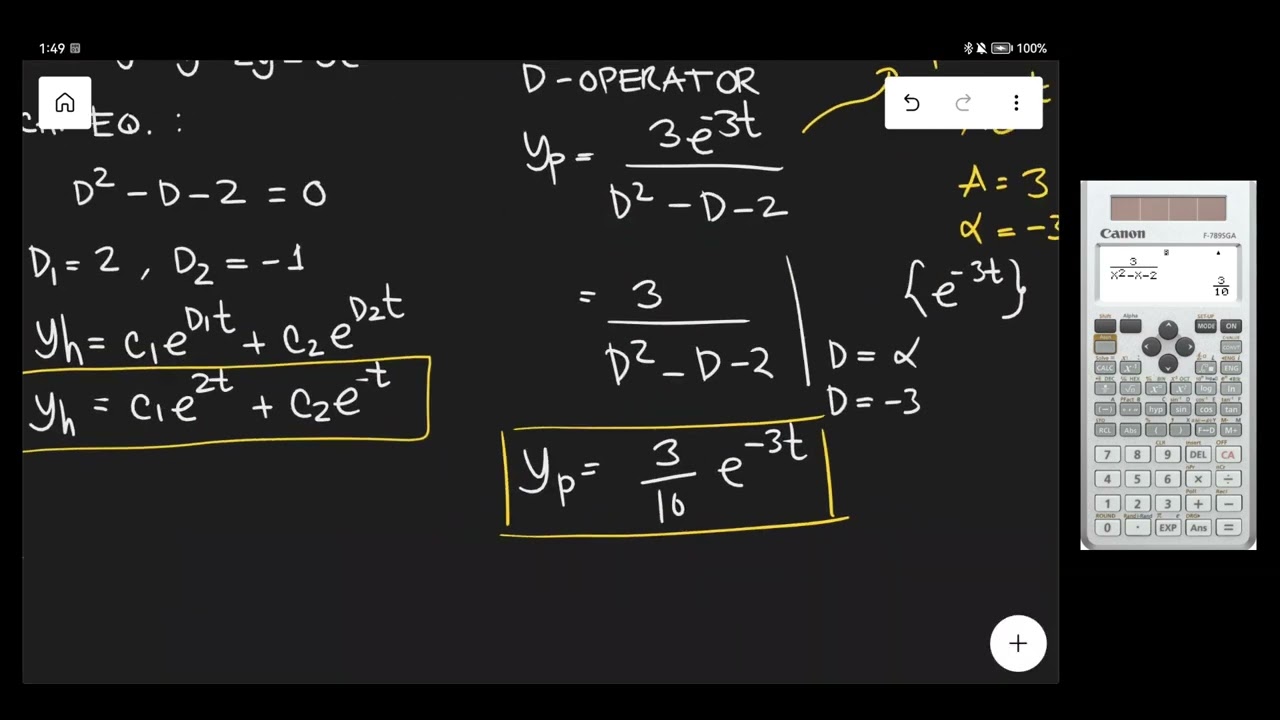 1:49
100%
CHA. EQ. :
D² - D - 2 = 0
D₁ = 2 , D₂ = -1
yh = c₁e^D₁t + c₂e^D₂t
yh = c₁e^2t + c₂e^-t
D-OPERATOR
yp = 3e^-3t / D² - D - 2
= 3 / D² - D - 2
{e^-3t}
D = α
D = -3
yp = 3/10 e^-3t
A = 3
α = -3
Canon
F-789SGA
3 / X²-X-2
3/10
MODE
ON
CALC
ENG
log
ln
(-)
hyp
sin
cos
tan
RCL
Abs
(
)
M+
7
8
9
DEL
CA
4
5
6
×
÷
1
2
3
+
−
0
·
EXP
Ans
=